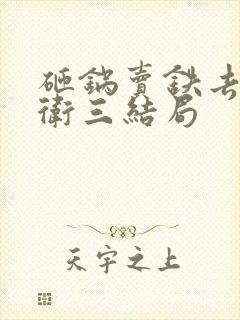 砸鍋賣鉄去
衛三結局
天宇之上